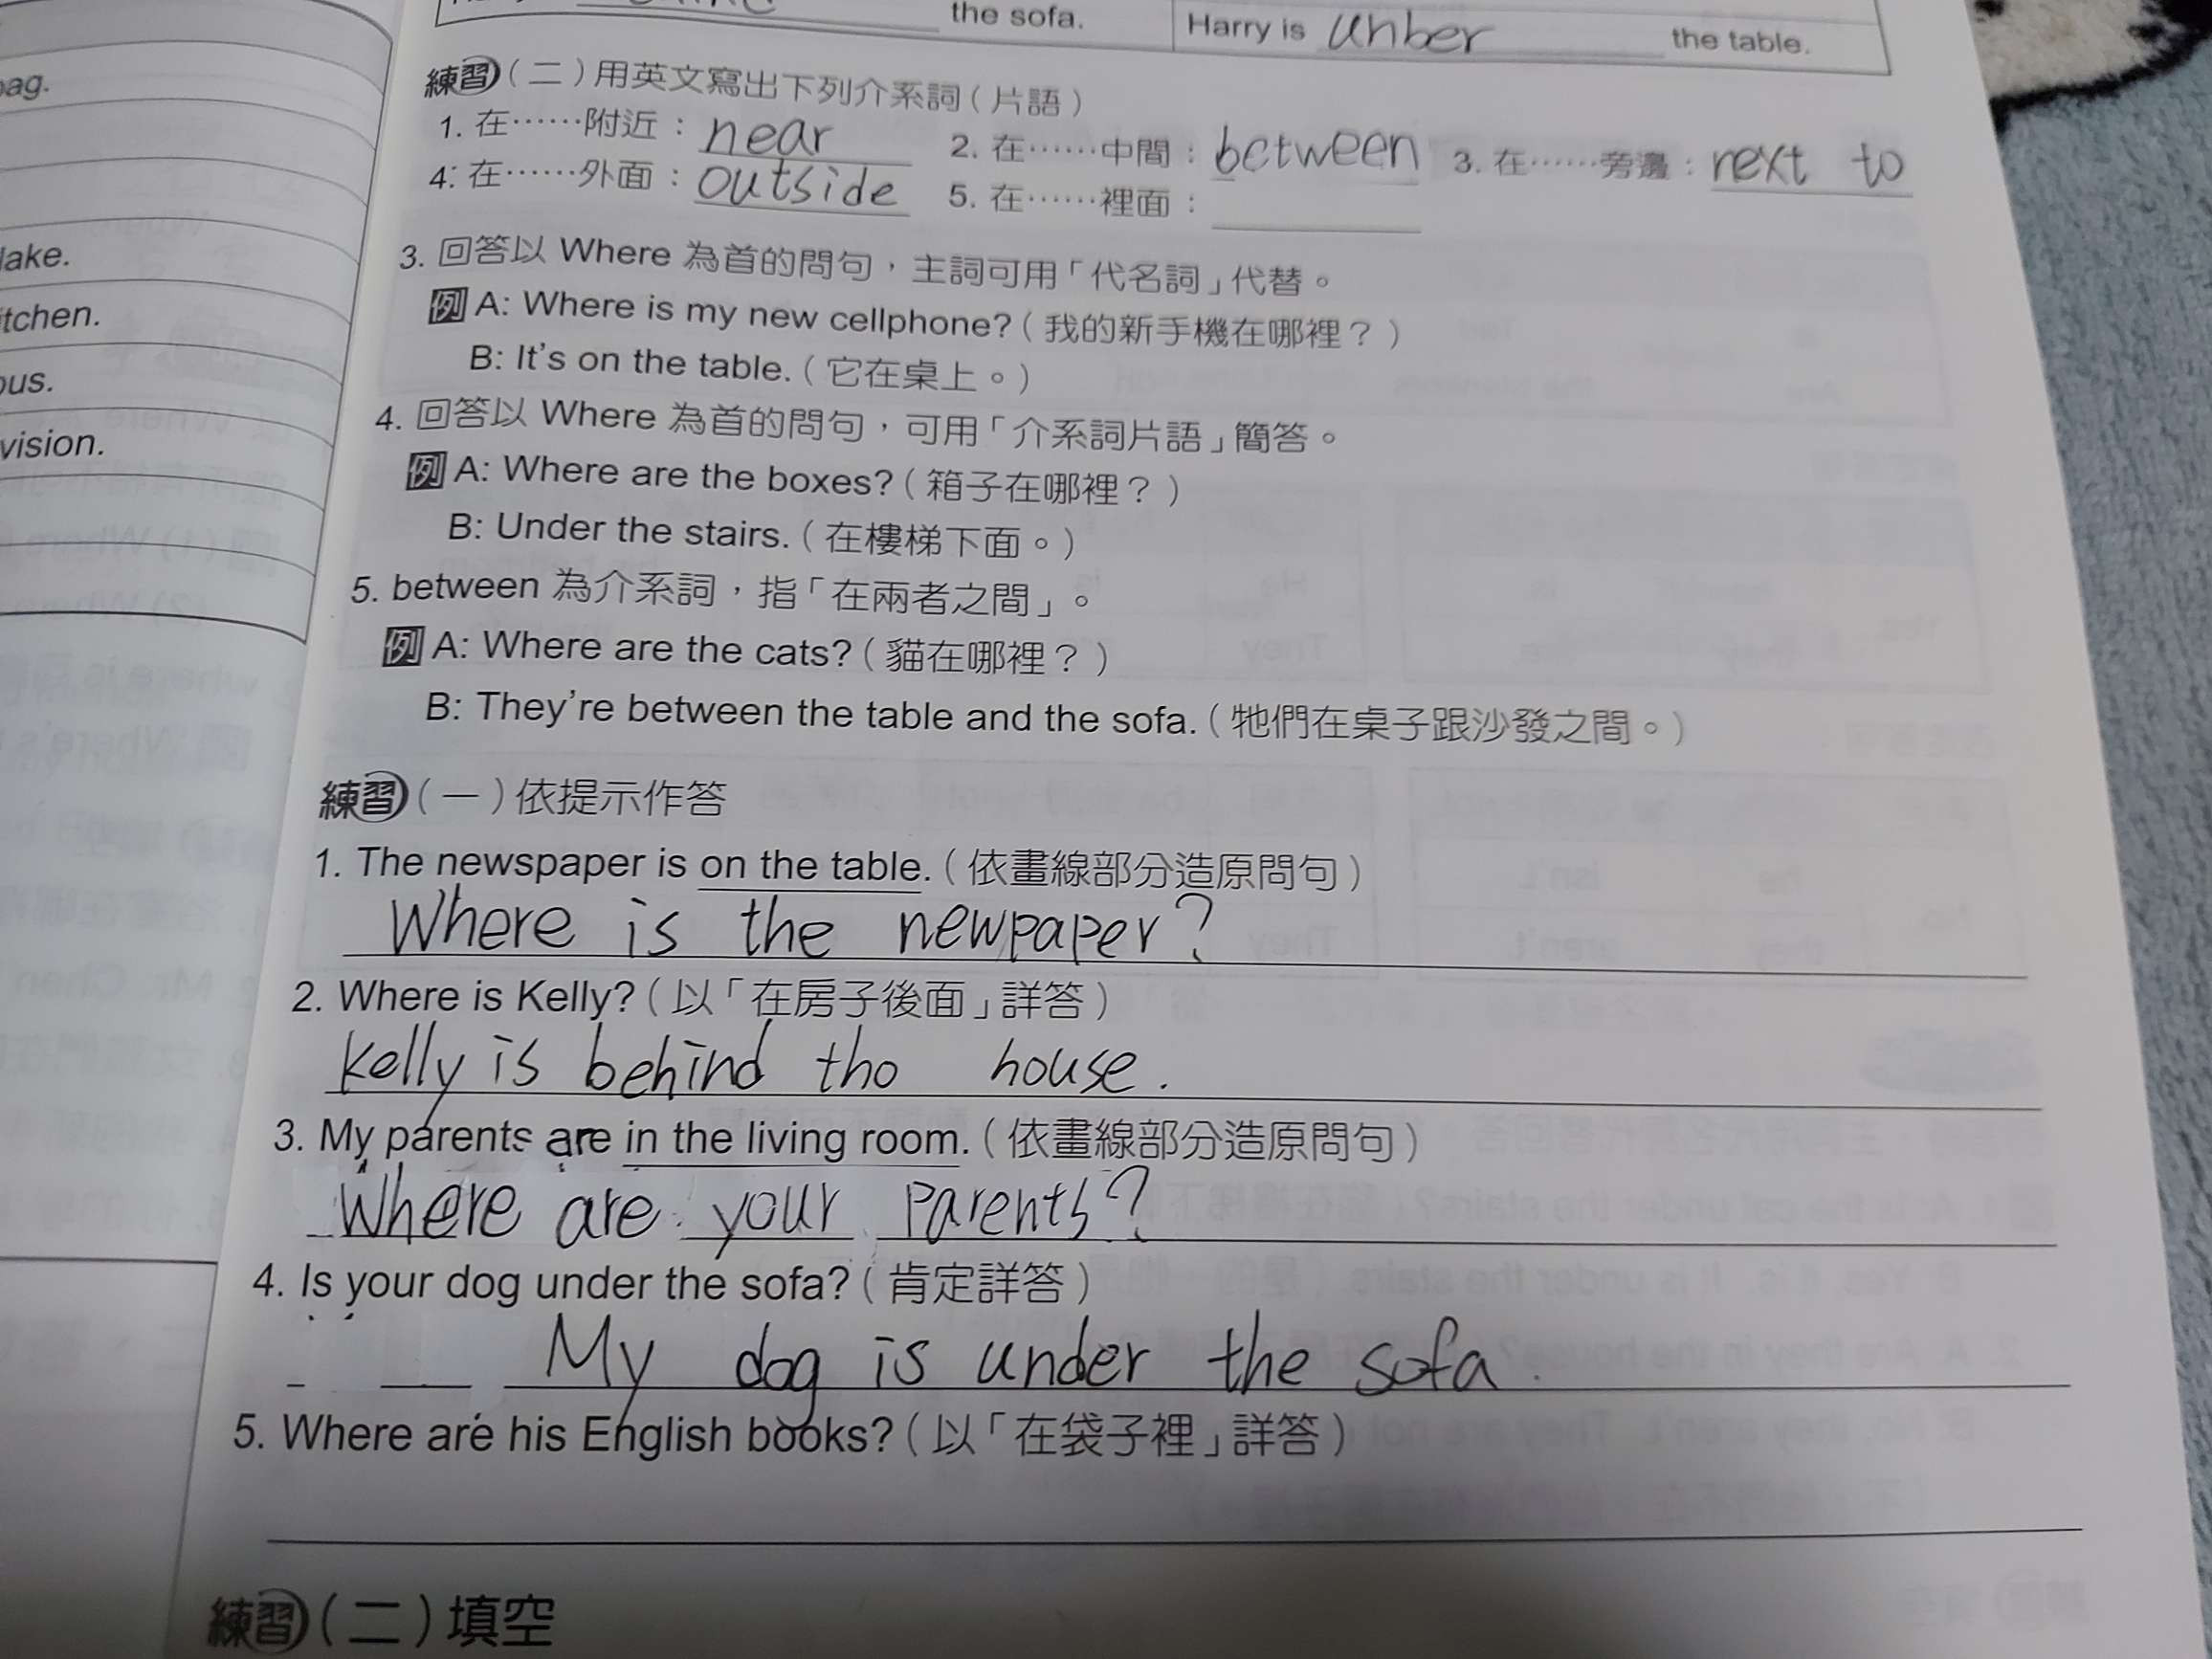 the sofa.
Harry is unber the table.
練習(二)用英文寫出下列介系詞(片語)
1. 在……附近:near 2. 在……中間:between 3. 在……旁邊:next to
4. 在……外面:outside 5. 在……裡面:
3. 回答以 Where 為首的問句,主詞可用「代名詞」代替。
例 A: Where is my new cellphone?(我的新手機在哪裡?)
B: It's on the table.(它在桌上。)
4. 回答以 Where 為首的問句,可用「介系詞片語」簡答。
例 A: Where are the boxes?(箱子在哪裡?)
B: Under the stairs.(在樓梯下面。)
5. between 為介系詞,指「在兩者之間」。
例 A: Where are the cats?(貓在哪裡?)
B: They're between the table and the sofa.(牠們在桌子跟沙發之間。)
練習(一)依提示作答
1. The newspaper is on the table.(依畫線部分造原問句)
Where is the newpaper?
2. Where is Kelly?(以「在房子後面」詳答)
Kelly is behind tho house.
3. My parents are in the living room.(依畫線部分造原問句)
Where are your parents?
4. Is your dog under the sofa?(肯定詳答)
My dog is under the sofa.
5. Where are his English books?(以「在袋子裡」詳答)
練習(二)填空
bag.
lake.
itchen.
ous.
vision.